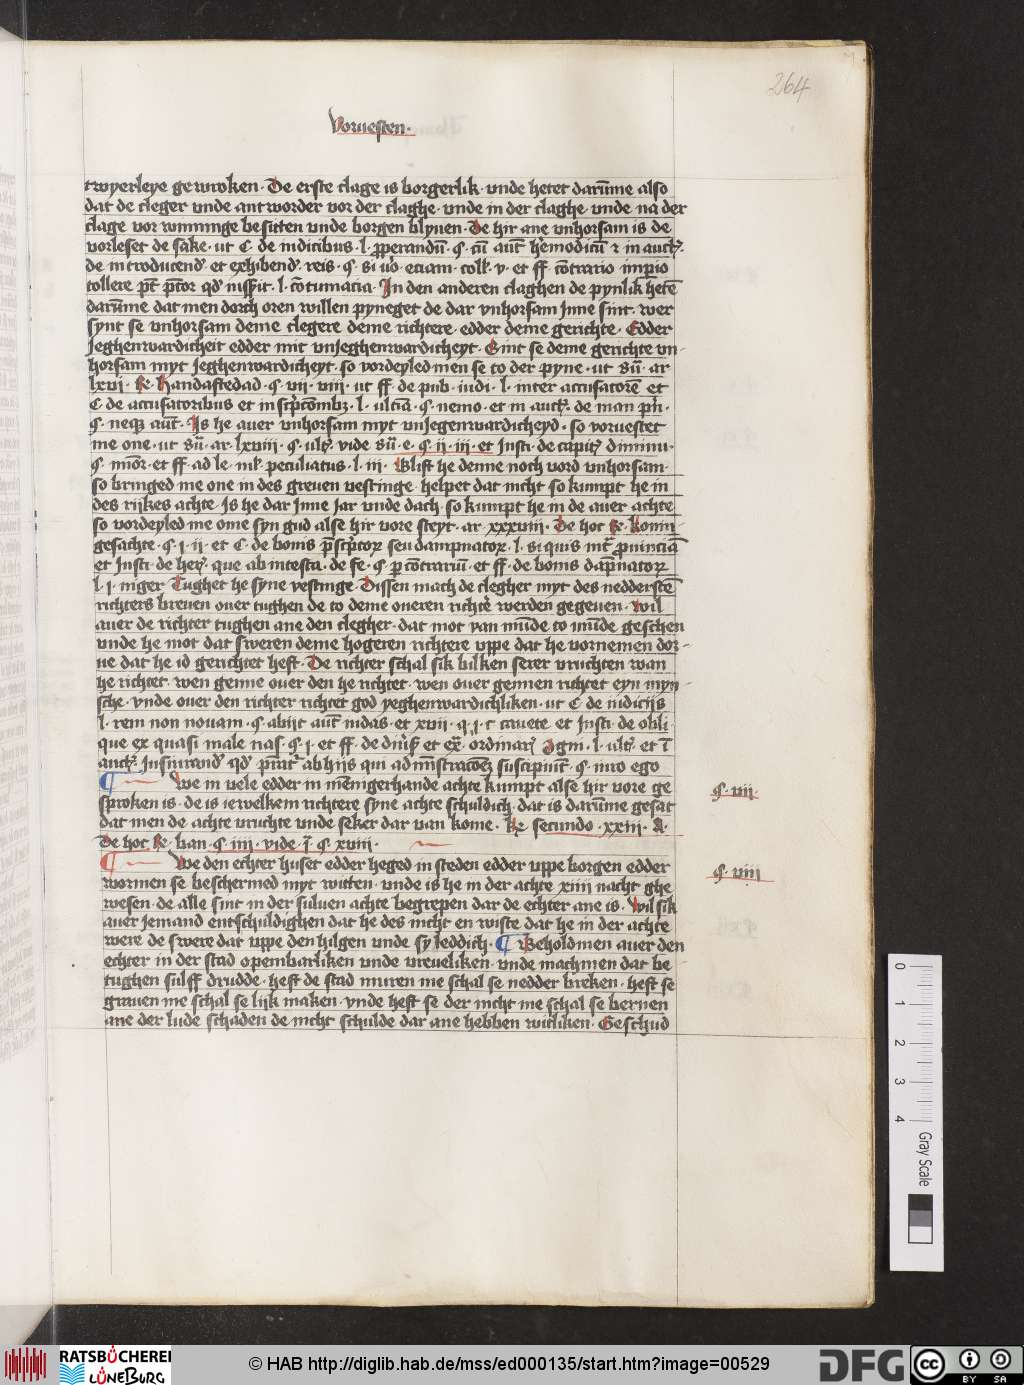 264
Voruesten·
twyerleye gewroken· De erste clage is borgerlik· vnde hetet darūme also
dat de cleger vnde antworder vor der claghe· vnde in der claghe· vnde na der
clage vor winninge besitten vnde borgen blyuen· De hir ane vnhorsam is de
vorleset de sake· ut C· de iudicibus· l· ꝓperandū· §· cū aut̄ hemodicū ⁊ in auct̹·
de introducend̹· et exhibend̹· reis· §· si v̄o eciam· coll̄· v· et ff cōtrario imꝑio
tollere pt̄ p̄tor qd̹ iussīt· l· cōtumacia· In den anderen claghen de pynlik hetē
darūme dat men dorch oren willen pyneget de dar vnhorsam Jnne sint· wer
synt se vnhorsam deme clegere deme richtere· edder deme gerichte· Edder
Jeghenwardicheit edder mit vnJeghenwardicheyt· Sint se deme gerichte vn-
horsam myt Jeghenwardicheyt· so vordeyled men se to der pyne· ut sū· ar
lxvi· Re· Handastedad· §· vii· viii· ut ff· de pub· iudi· l· inter accusatorē et
C· de accusatoribus et inscp̄tōmbꝫ· l· ultiā· §· nemo· et in auct̹· de man pn̄·
§· neqꝫ aut̄· Is he auer vnhorsam myt vnJegenwardicheyd· so voruestet
me one· ut sū· ar· lxviii· §· ult̹· vide sū· e· §· ii· iii· et Insti· de capit̹ diminu·
§· mior̄· et ff· ad le· iul̄· peculiatus· l· iii· Blift he denne noch vord vnhorsam·
so bringed me one in des greuen vestinge· helpet dat nicht so kumpt he in
des rijkes achte· Is he dar Jnne Jar vnde dach· so kumpt he in de auer achte
so vordeyled me ome syn gud alse hir vore steyt· ar· xxxviii· De hoc Re· konin
gesachte· §· i· ii· et C· de bonis p̄scp̄tor̹ seu dampnator̹· l· si quis int̄ ꝓuinciā
et Insti· de her̹· que ab intesta· de fe· §· ꝑ cōtrariū· et ff· de bonis dāpnator̹
l· i· niger Tughet he syne vestinge· Dissen mach de clegher myt des nedderstē
richters breuen ouer tughen de to deme oueren richt̄e werden gegeuen· Wil
auer de richter tughen ane den clegher· dat mot van mūde to mūde geschen
vnde he mot dat sweren deme hogeren richtere vppe dat he vornemen dor-
ue dat he id gerichtet heft· De richter schal sik bilken serer vruchten wan
he richtet· wen genne ouer den he richtet· wen ouer gennen richtet eyn myn-
sche· vnde ouer den richter richtet god yeghenwardichliken· ut C· de iudicijs
l· rem non nouam· §· abijt aut̄ iudas· et xvii· q· i· c cauete et Insti· de obli
que ex quasi male nas̄· §· i· et ff· de diu̕s̄ et ex̄· ordinar̹ Agni· l· ult̹· et ī
auct̹· Jusiurand̹ qd̹ p̄stat̕ ab hijs qui ad mīstracōeꝫ suscipiūt· §· iuro ego
¶ We in vele edder in mēnigerhande achte kumpt alse hir vore ge
§· vii·
sproken is· de is iewelkem richtere syne achte schuldich· dat is darūme gesat
dat men de achte vruchte vnde seker dar van kome· Re secundo· xxiii· A·
De hoc Re· ban· §· iiii· vide· ī· §· xviii·
¶ We den echter huset edder heged in steden edder vppe borgen edder
§· viii
wormen se beschermed myt witten· vnde is he in der achte xiiii nacht ghe
wesen· de alle sint in der suluen achte begrepen dar de echter ane is· Wil sik
auer Jemand entschuldighen dat he des nicht en wiste dat he in der achte
were de swere dat vppe den hilgen vnde sy leddich· ¶ Beholdmen auer den
echter in der stad openbarliken vnde vreueliken· vnde machmen dat be
tughen sulff drudde· heft de stad muren me schal se nedder breken· heft se
grauen me schal se lijk maken· vnde heft se der nicht me schal se bernen
ane der lude schaden de nicht schulde dar ane hebben witliken· Geschud
0 1 2 3 4 Gray Scale
RATSBÜCHEREI LÜNEBURG
© HAB http://diglib.hab.de/mss/ed000135/start.htm?image=00529
DFG
cc BY SA